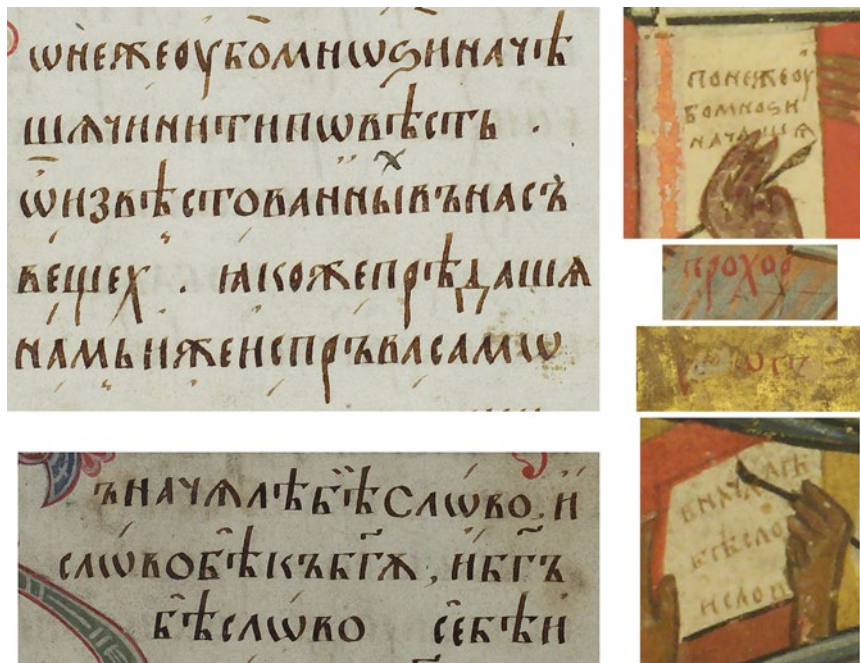 ѡнежеоубомнѡѕиначѣ
шѧчинитипѡвѣсть .
ѿизвѣстованныⷯвънасъ
вещех . ꙗкожепрѣдашѧ
намьижеиспръвасамѡ
ъначѧлѣбѣ̈слѡво. и
слѡвобѣкъбг҃ꙋ, ибг҃ъ
бѣслѡво сеⷨбѣи
понежеоу
бомноѕи
начашѧ
прохор
вначалѣ
бѣсло
исло